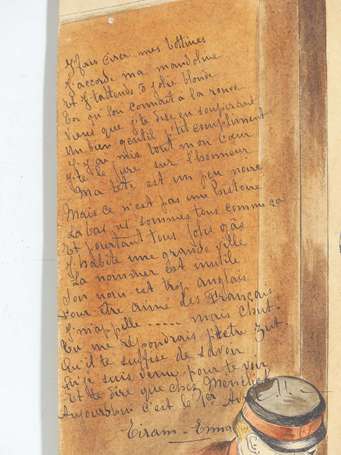 J'fais cirer mes bottines
J'accorde ma mandoline
Et J't'attends ô jolie blonde
Toi qu'l'on connait à la ronde
Viens que j'te dise en soupirant
Un bien gentil p'tit compliment
J'y ai mis tout mon cœur
J'te le jure sur l'honneur
Ma tête est un peu noire
Mais ce n'est pas une histoire
Labas nous sommes tous comme ça
Et pourtant tous jolis gas
J'habite une grande ville
La nommer est inutile
Son nom est trop anglais
Pour être aimé des Français
J'm'appelle ...... mais chut.
Tu me répondrais peutre zut.
Qu'il te suffise de savoir
Que je suis venu pour te voir
Et te dire que chez
Aujourd'hui c'est le 1er